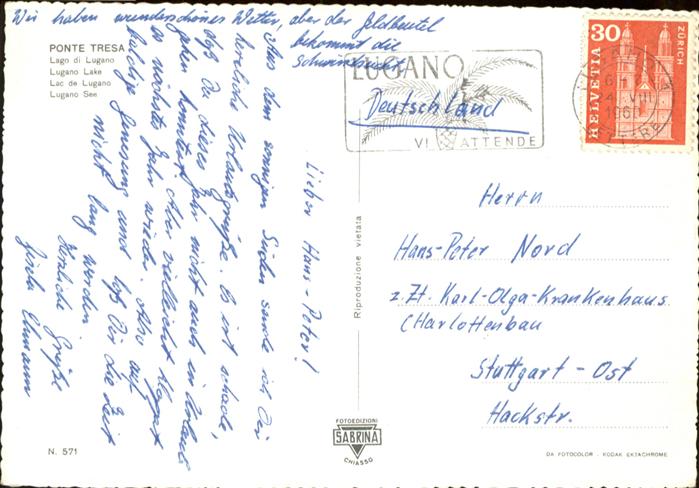 Wir haben wunderschönes Wetter, aber der Geldbeutel
bekommt die
Schwindsucht
PONTE TRESA
Lago di Lugano
Lugano Lake
Lac de Lugano
Lugano See
Lieber Hans-Peter!
Aus dem sonnigen Süden sende ich Dir
herzliche Urlaubsgrüße. Es ist schade,
daß Du dieses Jahr nicht auch in Urlaub
gehen konntest. Aber vielleicht klappt
es nächstes Jahr wieder. Also auf
baldige Genesung und laß Dir die Zeit
nicht lang werden
Herzliche Grüße
Gisela
N. 571
LUGANO
VI ATTENDE
Deutschland
30
HELVETIA
ZÜRICH
LUGANO
4. VIII
Riproduzione vietata
Herrn
Hans-Peter Nord
z. Zt. Karl-Olga-Krankenhaus
Charlottenbau
Stuttgart - Ost
Hackstr.
FOTOEDIZIONI
SABRINA
CHIASSO
DA FOTOCOLOR - KODAK EKTACHROME